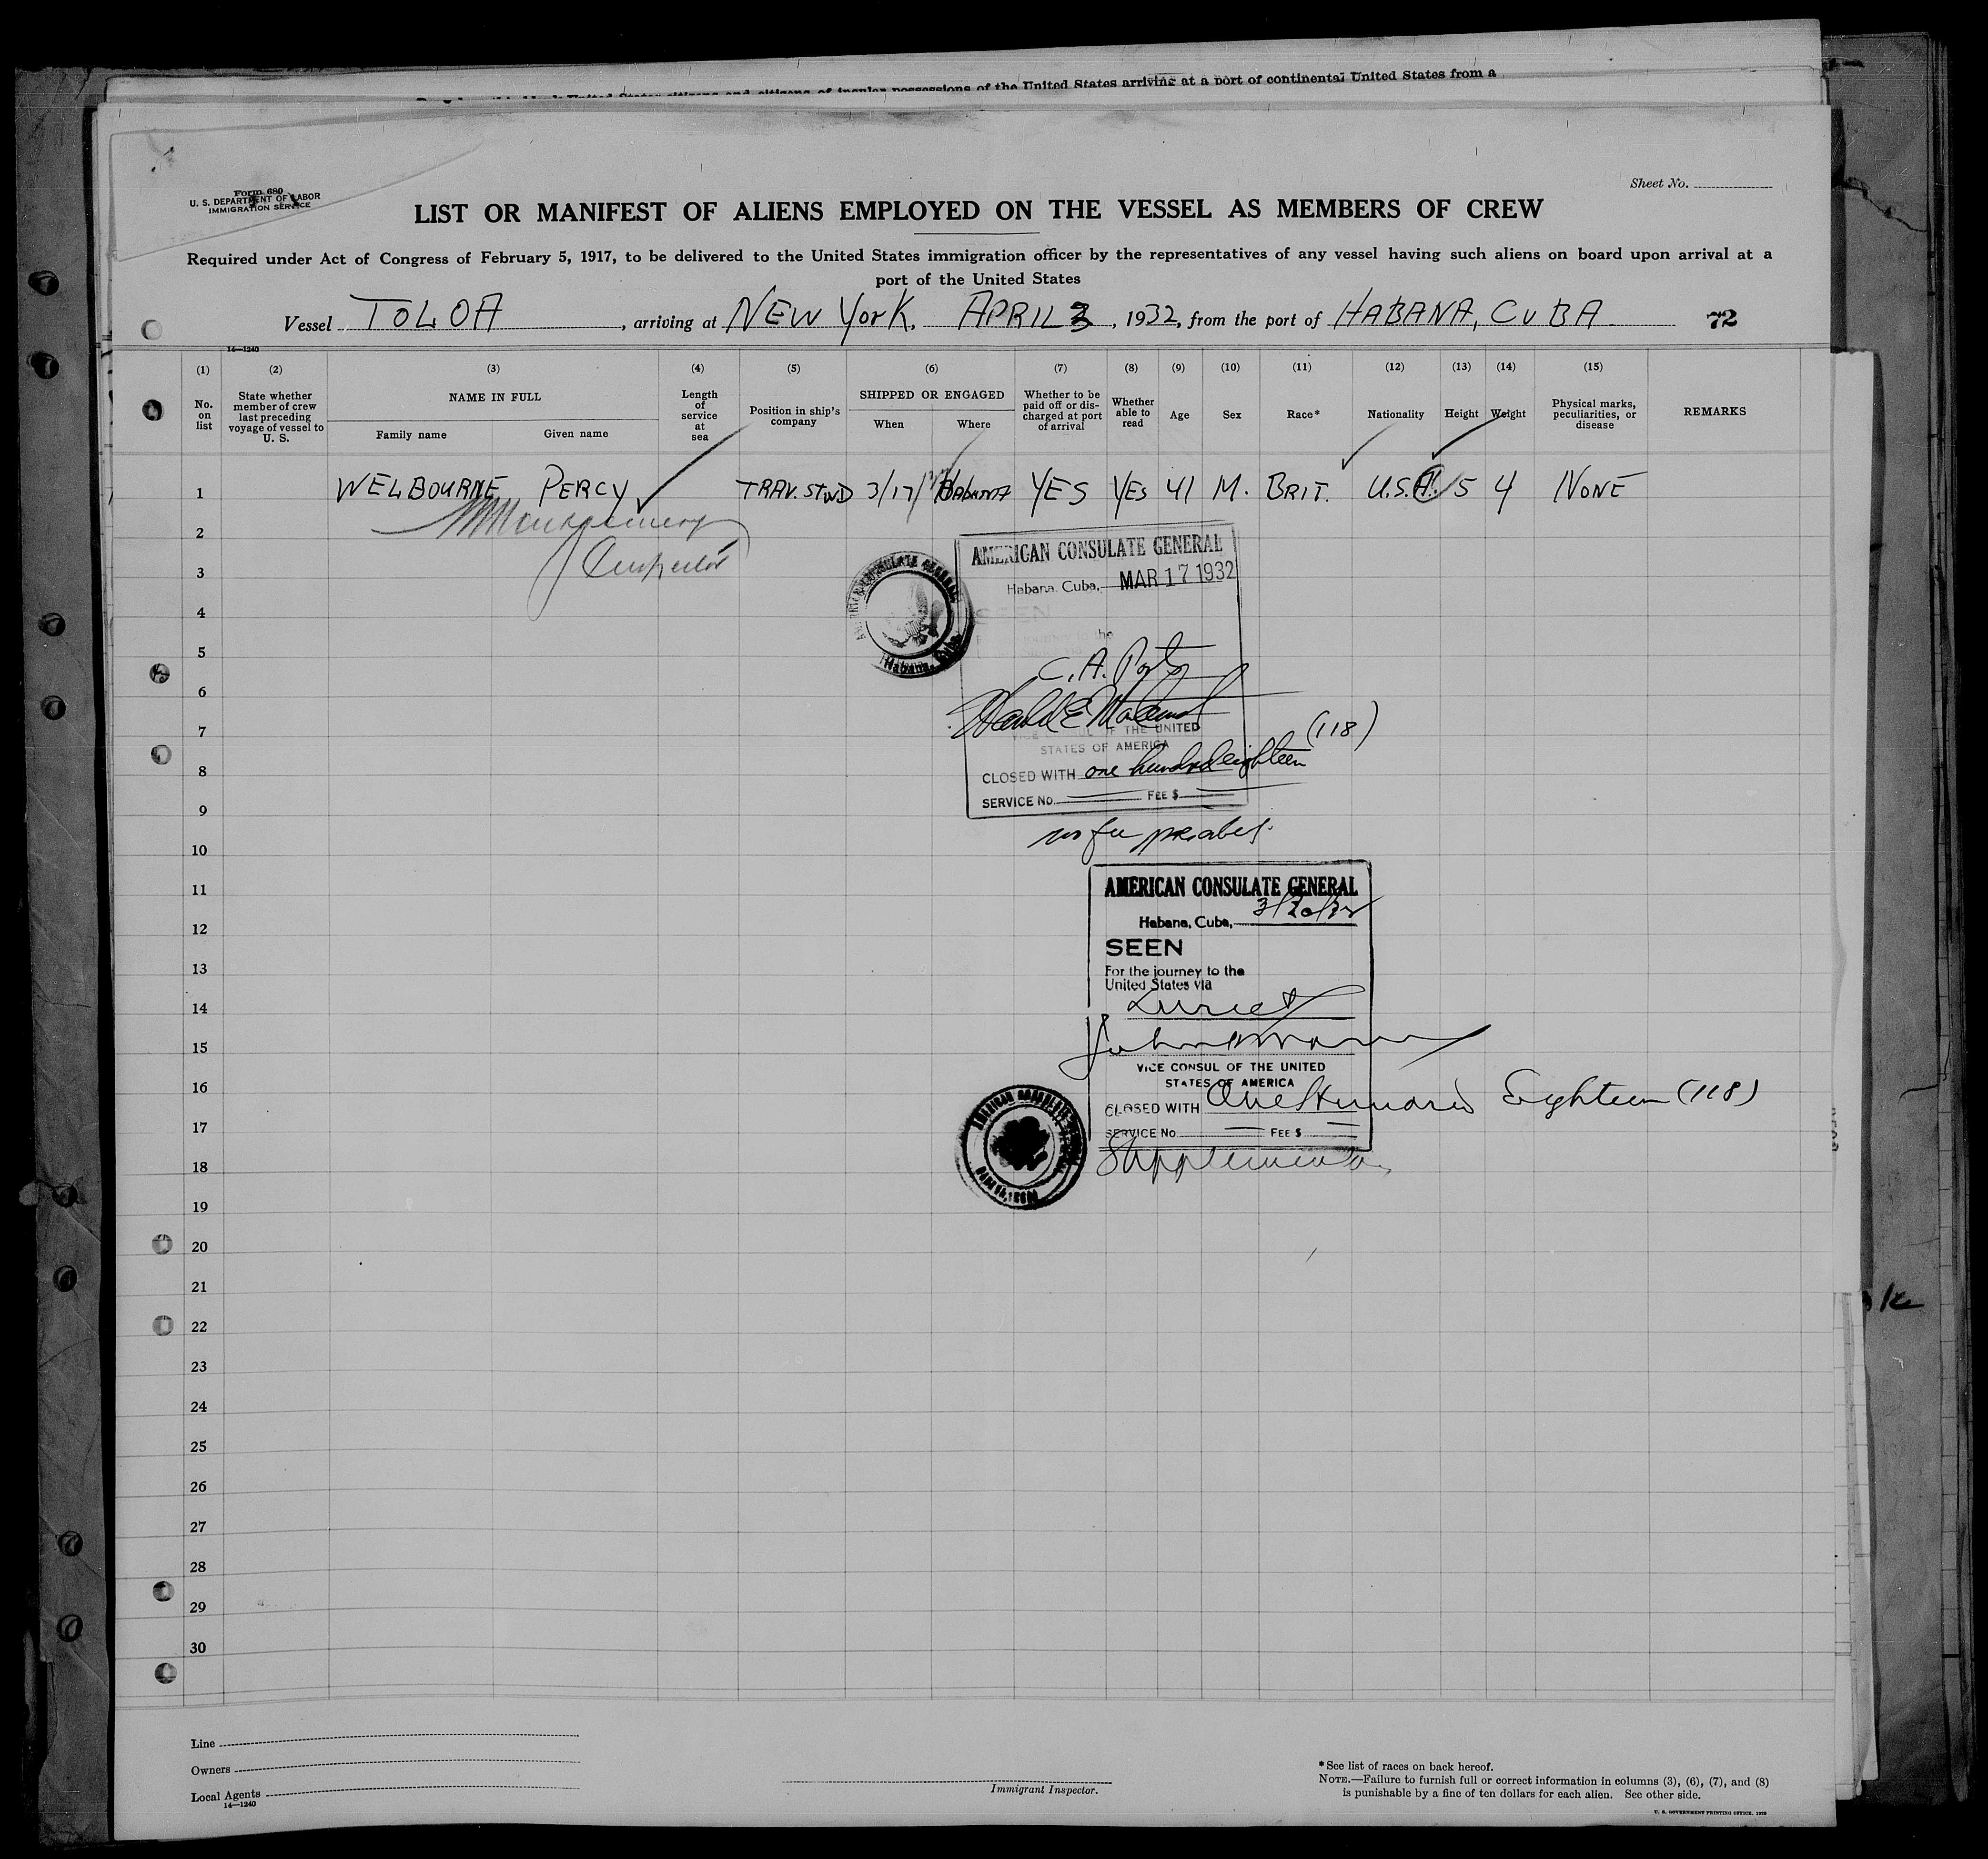 of the United States arriving at a port of continental United States from a
Sheet No.
Form 680
U. S. DEPARTMENT OF LABOR
IMMIGRATION SERVICE
LIST OR MANIFEST OF ALIENS EMPLOYED ON THE VESSEL AS MEMBERS OF CREW
Required under Act of Congress of February 5, 1917, to be delivered to the United States immigration officer by the representatives of any vessel having such aliens on board upon arrival at a
port of the United States
Vessel TOLOA, arriving at NEW YORK, APRIL 3, 1932, from the port of HABANA, CUBA 72
14—1240
(1) (2) (3) (4) (5) (6) (7) (8) (9) (10) (11) (12) (13) (14) (15)
No. on list
State whether member of crew last preceding voyage of vessel to U. S.
NAME IN FULL
Family name Given name
Length of service at sea
Position in ship's company
SHIPPED OR ENGAGED
When Where
Whether to be paid off or discharged at port of arrival
Whether able to read
Age
Sex
Race*
Nationality
Height
Weight
Physical marks, peculiarities, or disease
REMARKS
1 WELBOURNE PERCY TRAV. STWD 3/17/ HABANA YES YES 41 M. BRIT. U.S.A. 5 4 NONE
Montgomery
Inspector
2
3
4
5
6
7
8
9
10
11
12
13
14
15
16
17
18
19
20
21
22
23
24
25
26
27
28
29
30
AMERICAN CONSULATE GENERAL
Habana, Cuba, MAR 17 1932
SEEN
journey to the
C. A.
VICE CONSUL OF THE UNITED
STATES OF AMERICA
CLOSED WITH one hundred eighteen (118)
SERVICE No. FEE $
no fee
AMERICAN CONSULATE GENERAL
Habana, Cuba
AMERICAN CONSULATE GENERAL
Habana, Cuba, 3/20/32
SEEN
For the journey to the
United States via
Direct
VICE CONSUL OF THE UNITED
STATES OF AMERICA
CLOSED WITH One Hundred Eighteen (118)
SERVICE No. FEE $
Supplemental
Line
Owners
Local Agents
14—1240
Immigrant Inspector.
*See list of races on back hereof.
NOTE.—Failure to furnish full or correct information in columns (3), (6), (7), and (8)
is punishable by a fine of ten dollars for each alien. See other side.
U. S. GOVERNMENT PRINTING OFFICE